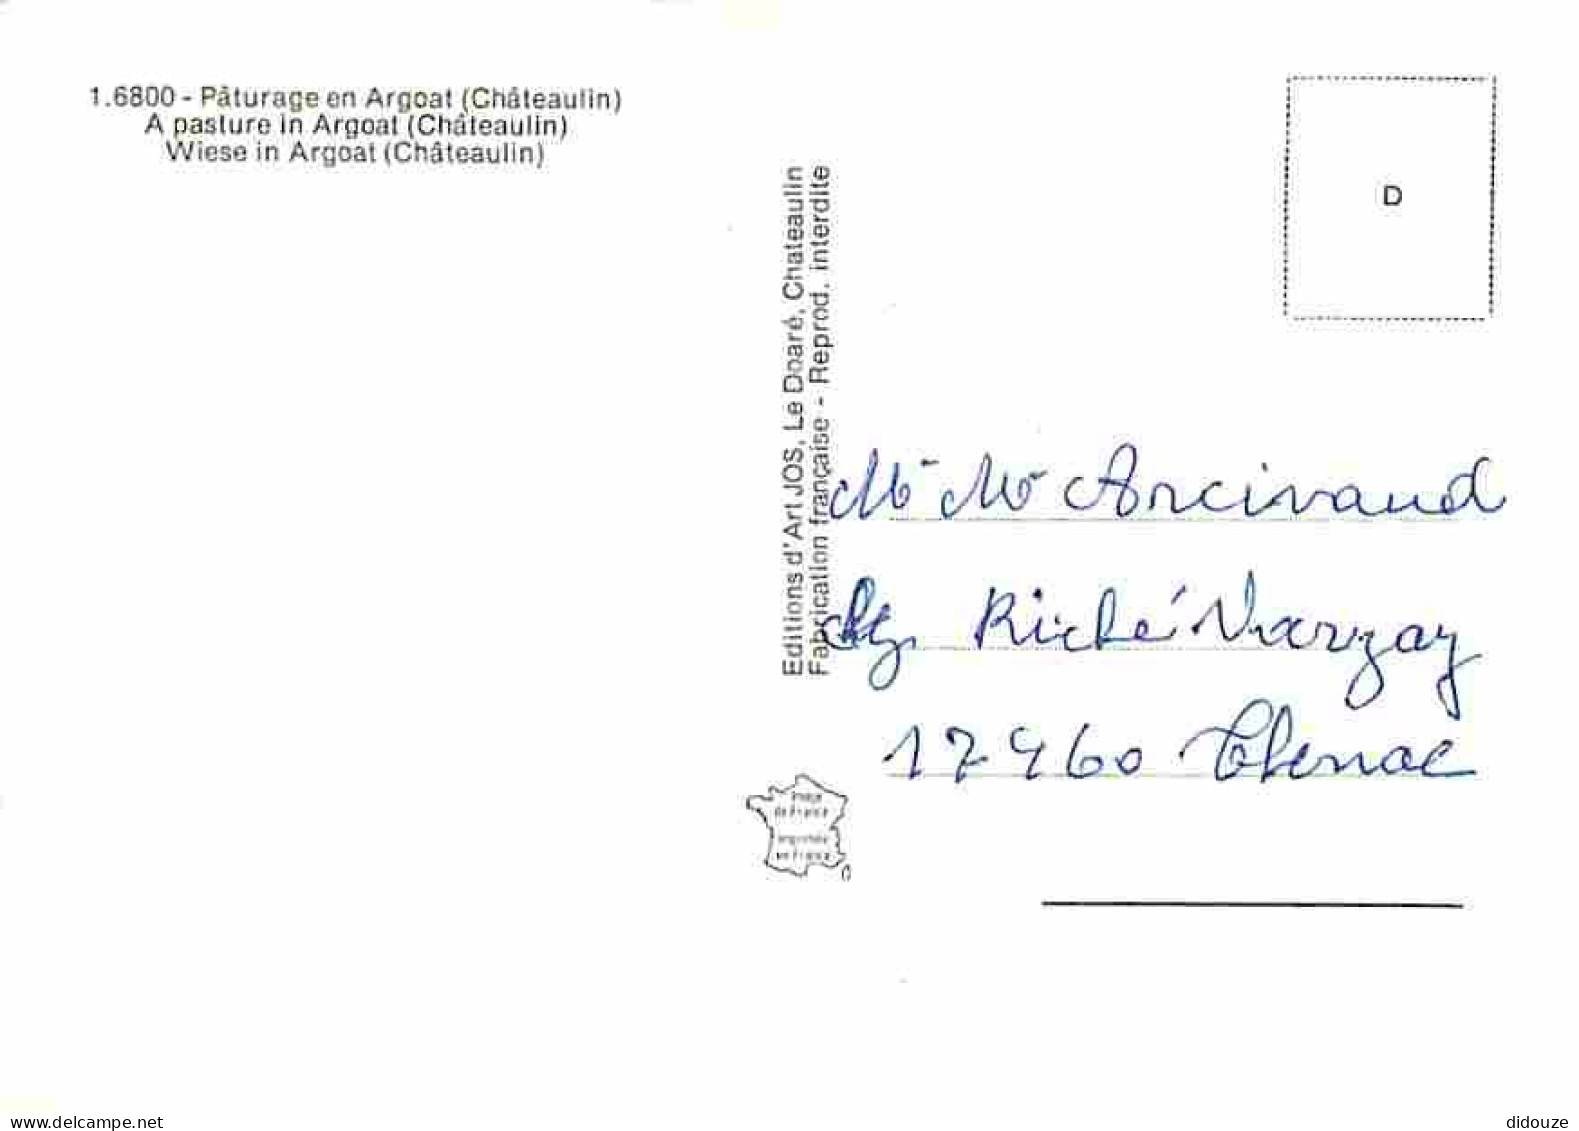 1.6800 - Pâturage en Argoat (Châteaulin)
A pasture in Argoat (Châteaulin)
Wiese in Argoat (Châteaulin)
D
Editions d'Art JOS, Le Doaré, Chateaulin
Fabrication française - Reprod. interdite
Mr Mr Arcivaud
Riché Varzay
17460 Thenac
Image
de France
imprimée
en France
delcampe.net
didouze